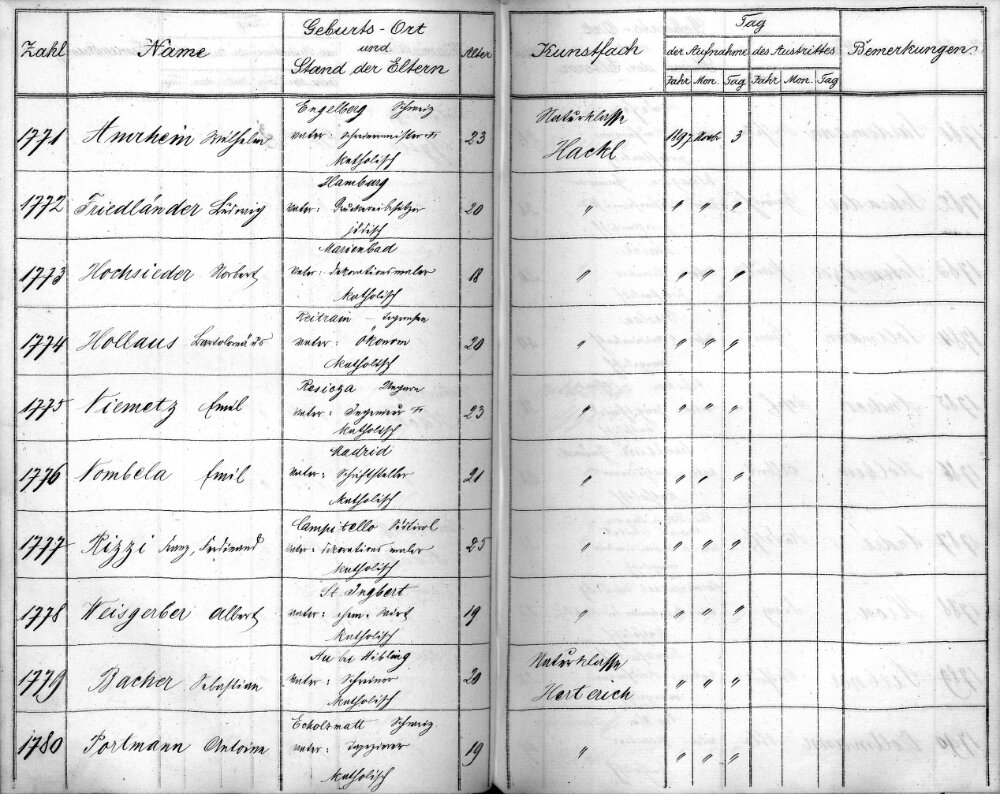 Zahl Name Geburts-Ort und Stand der Eltern Alter Kunstfach Tag der Aufnahme des Austrittes Bemerkungen
Jahr Mon. Tag Jahr Mon. Tag
Engelberg Schweiz Naturklasse
1771 Amrhein Wilhelm Vater: 23 Hackl 1897 3
Katholisch
Hamburg
1772 Friedländer Ludwig Vater: Druckereibesitzer 20 " " " "
jüdisch
Marienbad
1773 Hochsieder Norbert Vater: Dekorationsmaler 18 " " " "
Katholisch
1774 Hollaus Bartolomäus Vater: Ökonom 20 " " " "
Katholisch
Resicza Ungarn
1775 Niemetz Emil Vater: Ingenieur 23 " " " "
Katholisch
Madrid
1776 Nombela Emil Vater: Schriftsteller 21 " " " "
Katholisch
Campitello Südtirol
1777 Rizzi Ferdinand Vater: Dekorationsmaler 25 " " " "
Katholisch
St. Ingbert
1778 Weisgerber Albert Vater: ehem. Wirt 19 " " " "
Katholisch
Au bei Aibling Naturklasse
1779 Bacher Sebastian Vater: Schreiner 20 Herterich " " "
Katholisch
Escholzmatt Schweiz
1780 Portmann Antoine Vater: Tapezierer 19 " " " "
Katholisch